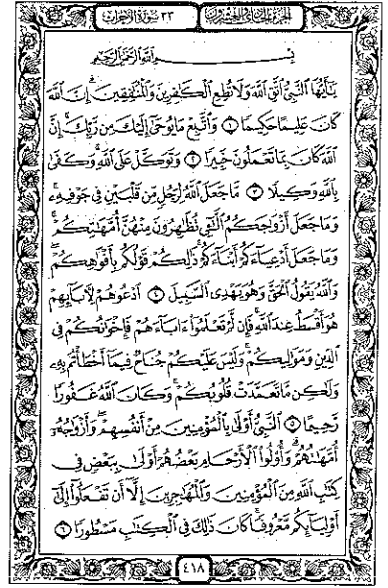 الجزء الحادي والعشرون ٣٣ سورة الأحزاب
بسم الله الرحمن الرحيم
يَٰٓأَيُّهَا ٱلنَّبِىُّ ٱتَّقِ ٱللَّهَ وَلَا تُطِعِ ٱلْكَٰفِرِينَ وَٱلْمُنَٰفِقِينَ إِنَّ ٱللَّهَ
كَانَ عَلِيمًا حَكِيمًا ١ وَٱتَّبِعْ مَا يُوحَىٰٓ إِلَيْكَ مِن رَّبِّكَ إِنَّ
ٱللَّهَ كَانَ بِمَا تَعْمَلُونَ خَبِيرًا ٢ وَتَوَكَّلْ عَلَى ٱللَّهِ وَكَفَىٰ
بِٱللَّهِ وَكِيلًا ٣ مَّا جَعَلَ ٱللَّهُ لِرَجُلٍ مِّن قَلْبَيْنِ فِى جَوْفِهِۦ
وَمَا جَعَلَ أَزْوَٰجَكُمُ ٱلَّٰٓـِٔى تُظَٰهِرُونَ مِنْهُنَّ أُمَّهَٰتِكُمْ
وَمَا جَعَلَ أَدْعِيَآءَكُمْ أَبْنَآءَكُمْ ذَٰلِكُمْ قَوْلُكُم بِأَفْوَٰهِكُمْ
وَٱللَّهُ يَقُولُ ٱلْحَقَّ وَهُوَ يَهْدِى ٱلسَّبِيلَ ٤ ٱدْعُوهُمْ لِءَابَآئِهِمْ
هُوَ أَقْسَطُ عِندَ ٱللَّهِ فَإِن لَّمْ تَعْلَمُوٓا۟ ءَابَآءَهُمْ فَإِخْوَٰنُكُمْ فِى
ٱلدِّينِ وَمَوَٰلِيكُمْ وَلَيْسَ عَلَيْكُمْ جُنَاحٌ فِيمَآ أَخْطَأْتُم بِهِۦ
وَلَٰكِن مَّا تَعَمَّدَتْ قُلُوبُكُمْ وَكَانَ ٱللَّهُ غَفُورًا
رَّحِيمًا ٥ ٱلنَّبِىُّ أَوْلَىٰ بِٱلْمُؤْمِنِينَ مِنْ أَنفُسِهِمْ وَأَزْوَٰجُهُۥٓ
أُمَّهَٰتُهُمْ وَأُو۟لُوا۟ ٱلْأَرْحَامِ بَعْضُهُمْ أَوْلَىٰ بِبَعْضٍ فِى
كِتَٰبِ ٱللَّهِ مِنَ ٱلْمُؤْمِنِينَ وَٱلْمُهَٰجِرِينَ إِلَّآ أَن تَفْعَلُوٓا۟ إِلَىٰٓ
أَوْلِيَآئِكُم مَّعْرُوفًا كَانَ ذَٰلِكَ فِى ٱلْكِتَٰبِ مَسْطُورًا ٦
٤١٨